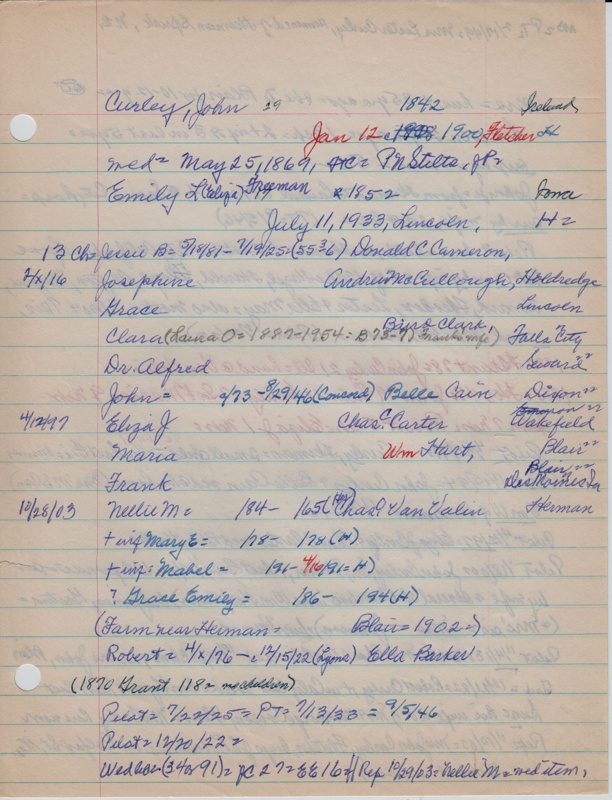 Curley, John 39 1842 Ireland
Jan 12 c1898 1900, Fletcher H
wed = May 25, 1869, HC = P N Stilts, JP=
Emily L (Eliza) Freeman * 1852 Iowa
July 11, 1933, Lincoln, H=
13 Ch= Jessie B= 5/18/81 - 7/19/25= (5536) Donald C Cameron,
2/x/16 Josephine Andrew McCullough, Holdredge
Grace Lincoln
Clara (Laura O= 1887-1954= B73-7) Frank's wife) Baird Clark, Falls City
Dr. Alfred Seward "
John = 9/73 - 8/29/46 (Concord) Belle Cain Dixon "
4/12/97 Eliza J Chas. C. Carter Wakefield
Maria Wm Hart, Blair "
Frank Blair " Des Moines Ia
10/28/03 Nellie M= 184- 165 (H) Chas. Van Valin Herman
+ inf Mary E= 178- 178 (H)
+ inf: Mabel = 191- 4/16/91=H)
? Grace Emily = 186- 194(H)
(Farm near Herman= Blair= 1902=)
Robert= 4/x/76 - c12/15/22 (Lyons) Ella Barker
(1870 Grant 118= no children)
Pilot= 7/22/25= PT= 7/13/33 = 9/5/46
Pilot= 12/20/22=
Wed lic= (34 or 91)= JC 27= EE 16= // Rep. 10/29/03= Nellie M= wed item,